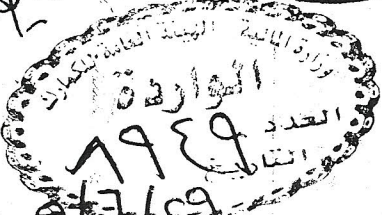 وزارة المالية الهيئة العامة للكمارك
الواردة
العدد ٨٩٤٩
التاريخ